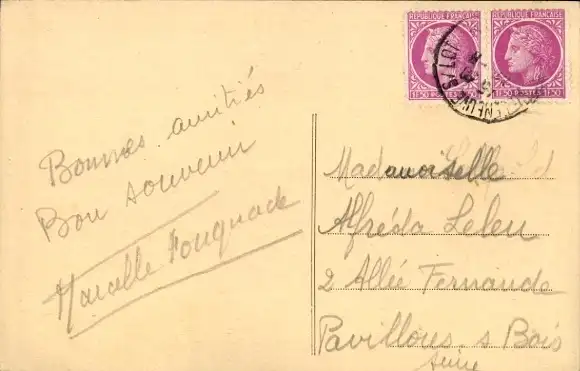 REPUBLIQUE FRANÇAISE
REPUBLIQUE FRANÇAISE
1F50 POSTES 1F50
1F50 POSTES 1F50
S/LOT
Bonnes amitiés
Bon souvenir
Marcelle Fouquade
Mademoiselle
Alfréda Leleu
2 Allée Fernande
Pavillons s Bois
Seine